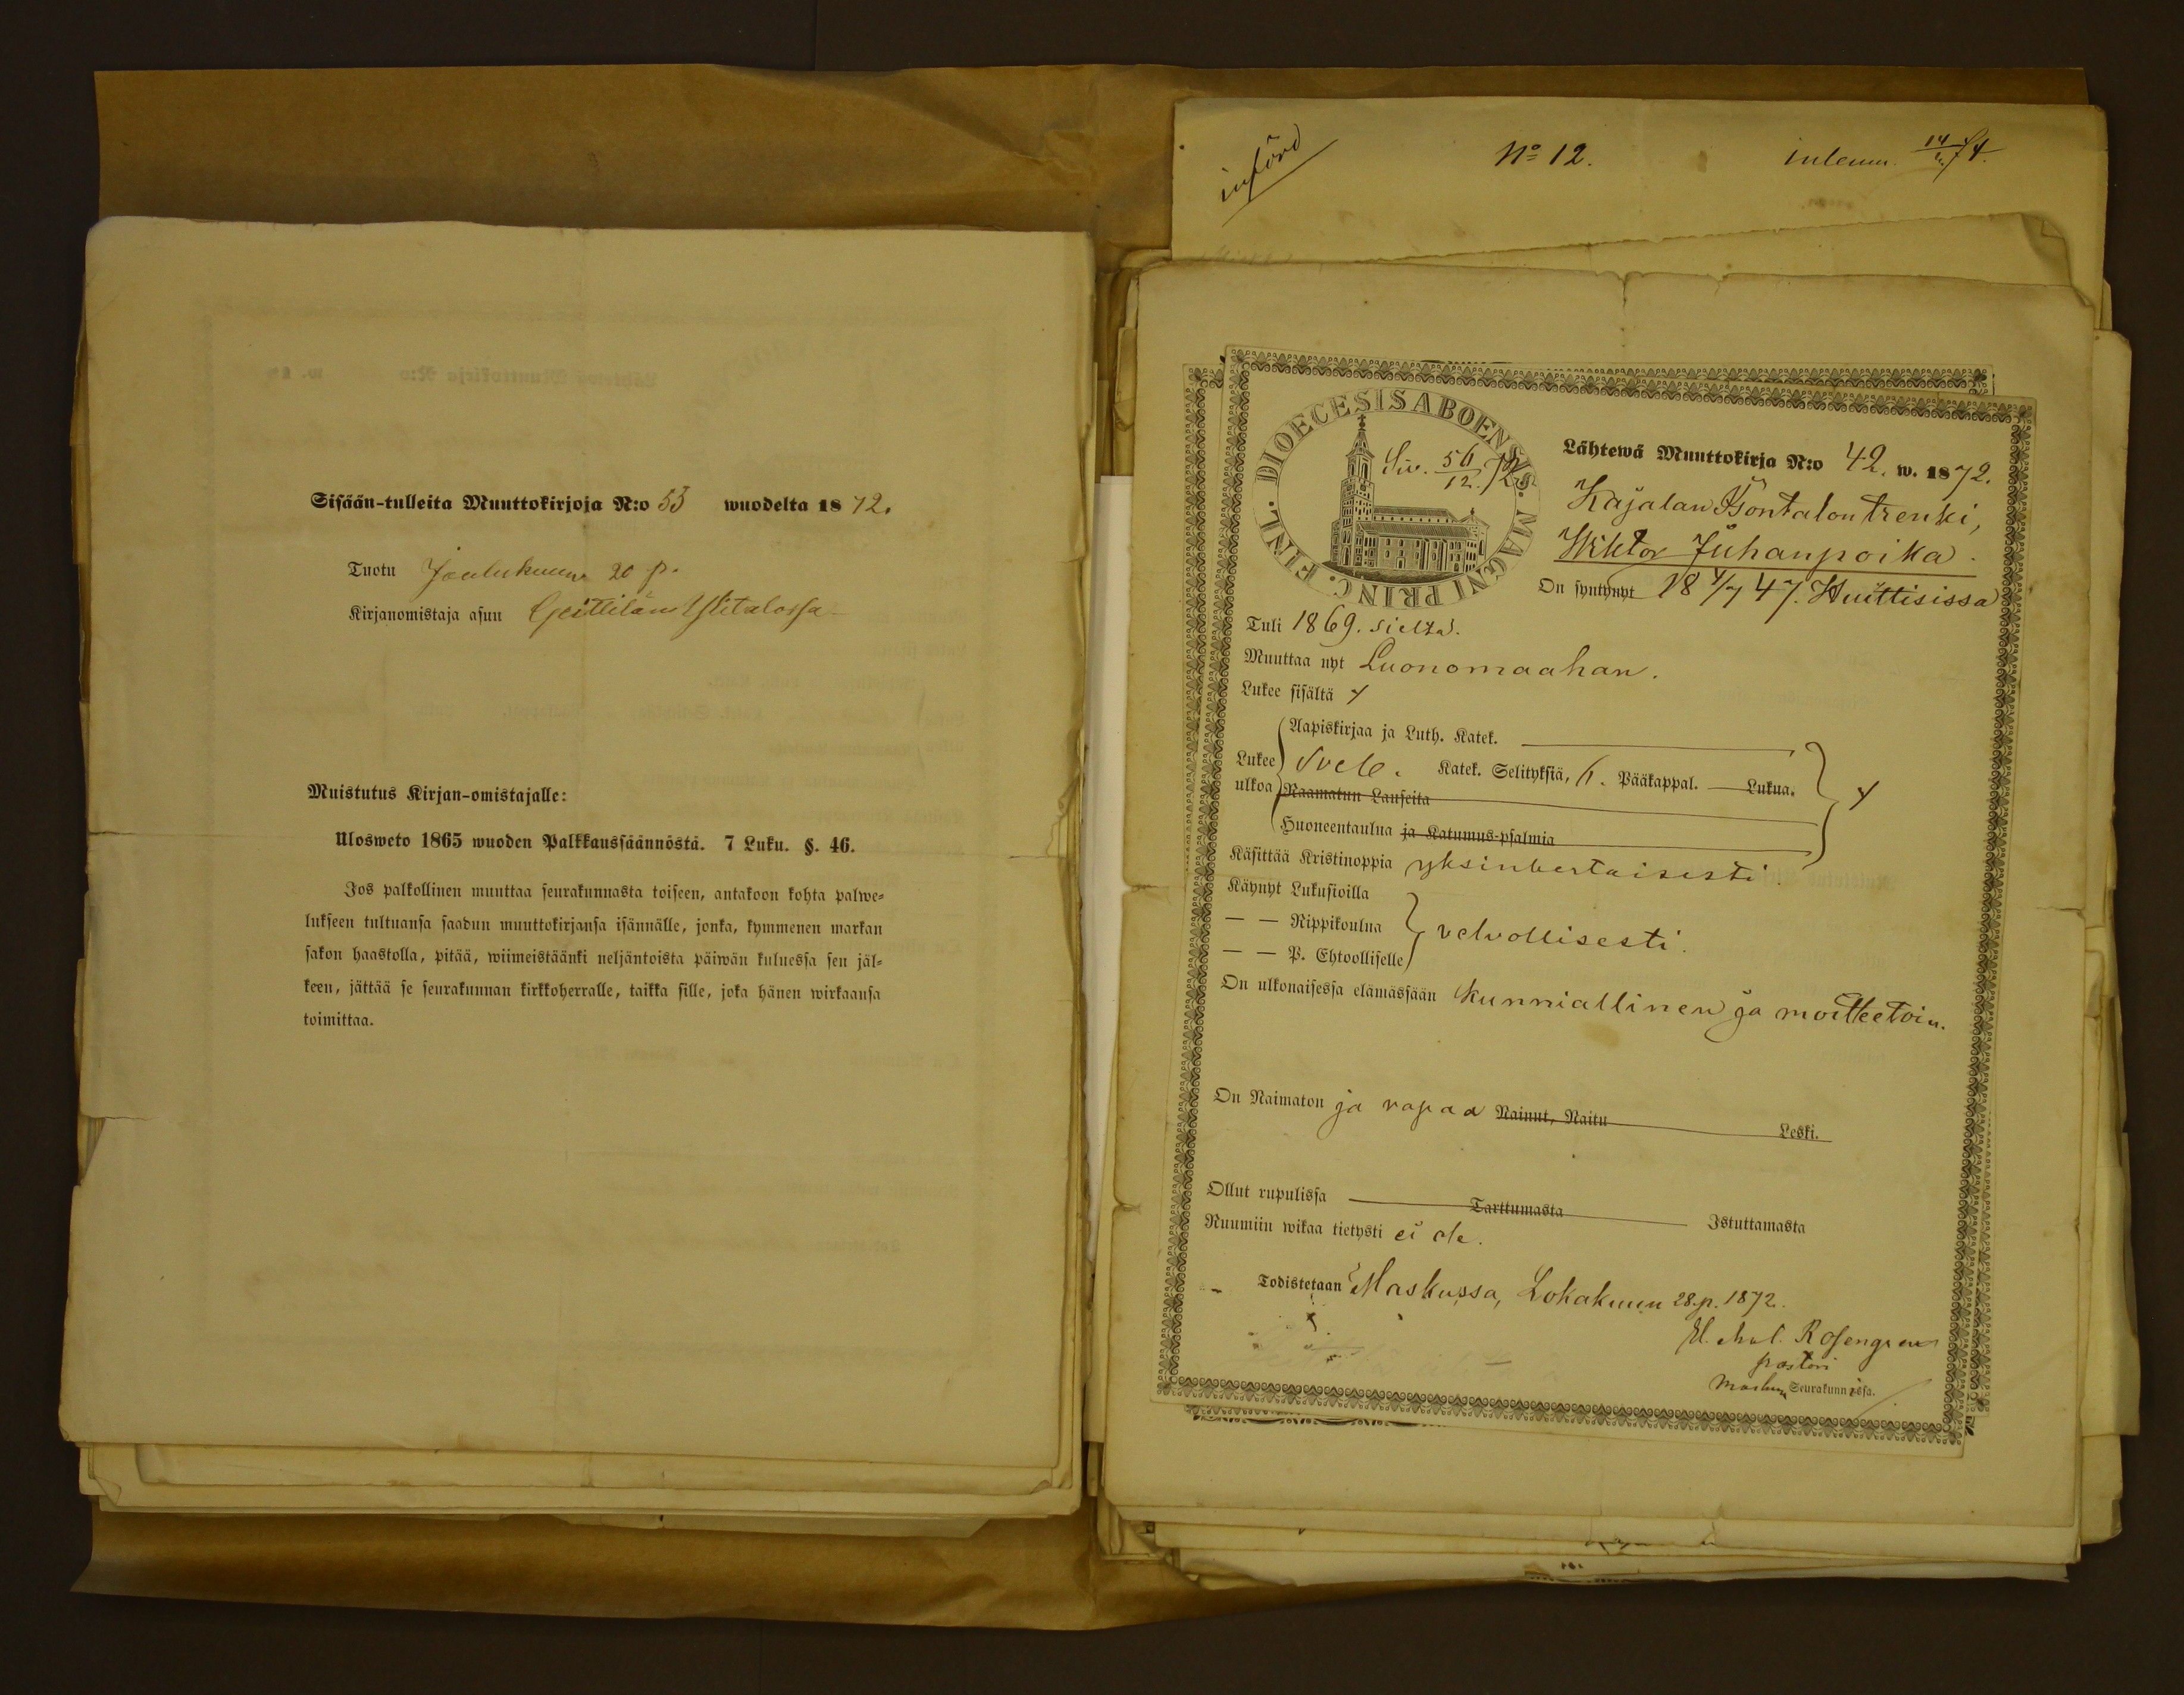 Sisään-tulleita Muuttokirjoja N:o 53 wuodelta 1872.
Tuotu Joulukuun 20 p.
Kirjanomistaja asuu Ylitalossa
Muistutus Kirjan-omistajalle:
Ulosweto 1865 wuoden Palkkaussäännöstä. 7 Luku. §. 46.
Jos palkollinen muuttaa seurakunnasta toiseen, antakoon kohta palwe-
lukseen tultuansa saadun muuttokirjansa isännälle, jonka, kymmenen markan
sakon haastolla, pitää, wiimeistäänki neljäntoista päiwän kuluessa sen jäl-
keen, jättää se seurakunnan kirkkoherralle, taikka sille, joka hänen wirkaansa
toimittaa.
införd
No 12.
inlemn. 14/74.
FINL. DIOECESIS ABOENSIS. MAGNI PRINC.
Siv. 56
12. 72
Lähtewä Muuttokirja N:o 42. w. 1872.
Kajalan Isontalon trenki,
Wiktor Juhanpoika.
On syntynyt 18 4/7 47. Huittisissa
Tuli 1869. sieltä.
Muuttaa nyt Luonomaahan.
Lukee sisältä
Aapiskirjaa ja Luth. Katek.
Lukee ulkoa Svele. Katek. Selityksiä, 6. Pääkappal. — Lukua.
Raamatun Lauseita
Huoneentaulua ja Katumus-psalmia
Käsittää Kristinoppia yksinkertaisesti.
Käynyt Lukusioilla
— — Rippikoulua velvollisesti.
— — P. Ehtoolliselle
On ulkonaisessa elämässään kunniallinen ja moitteetoin.
On Naimaton ja vapaa Nainut, Naitu Leski.
Ollut rupulissa Tarttumasta Istuttamasta
Ruumiin wikaa tietysti ei ole.
Todistetaan Maskussa, Lokakuun 28 p. 1872.
Rosengren
pastori
Maskun Seurakunnissa.